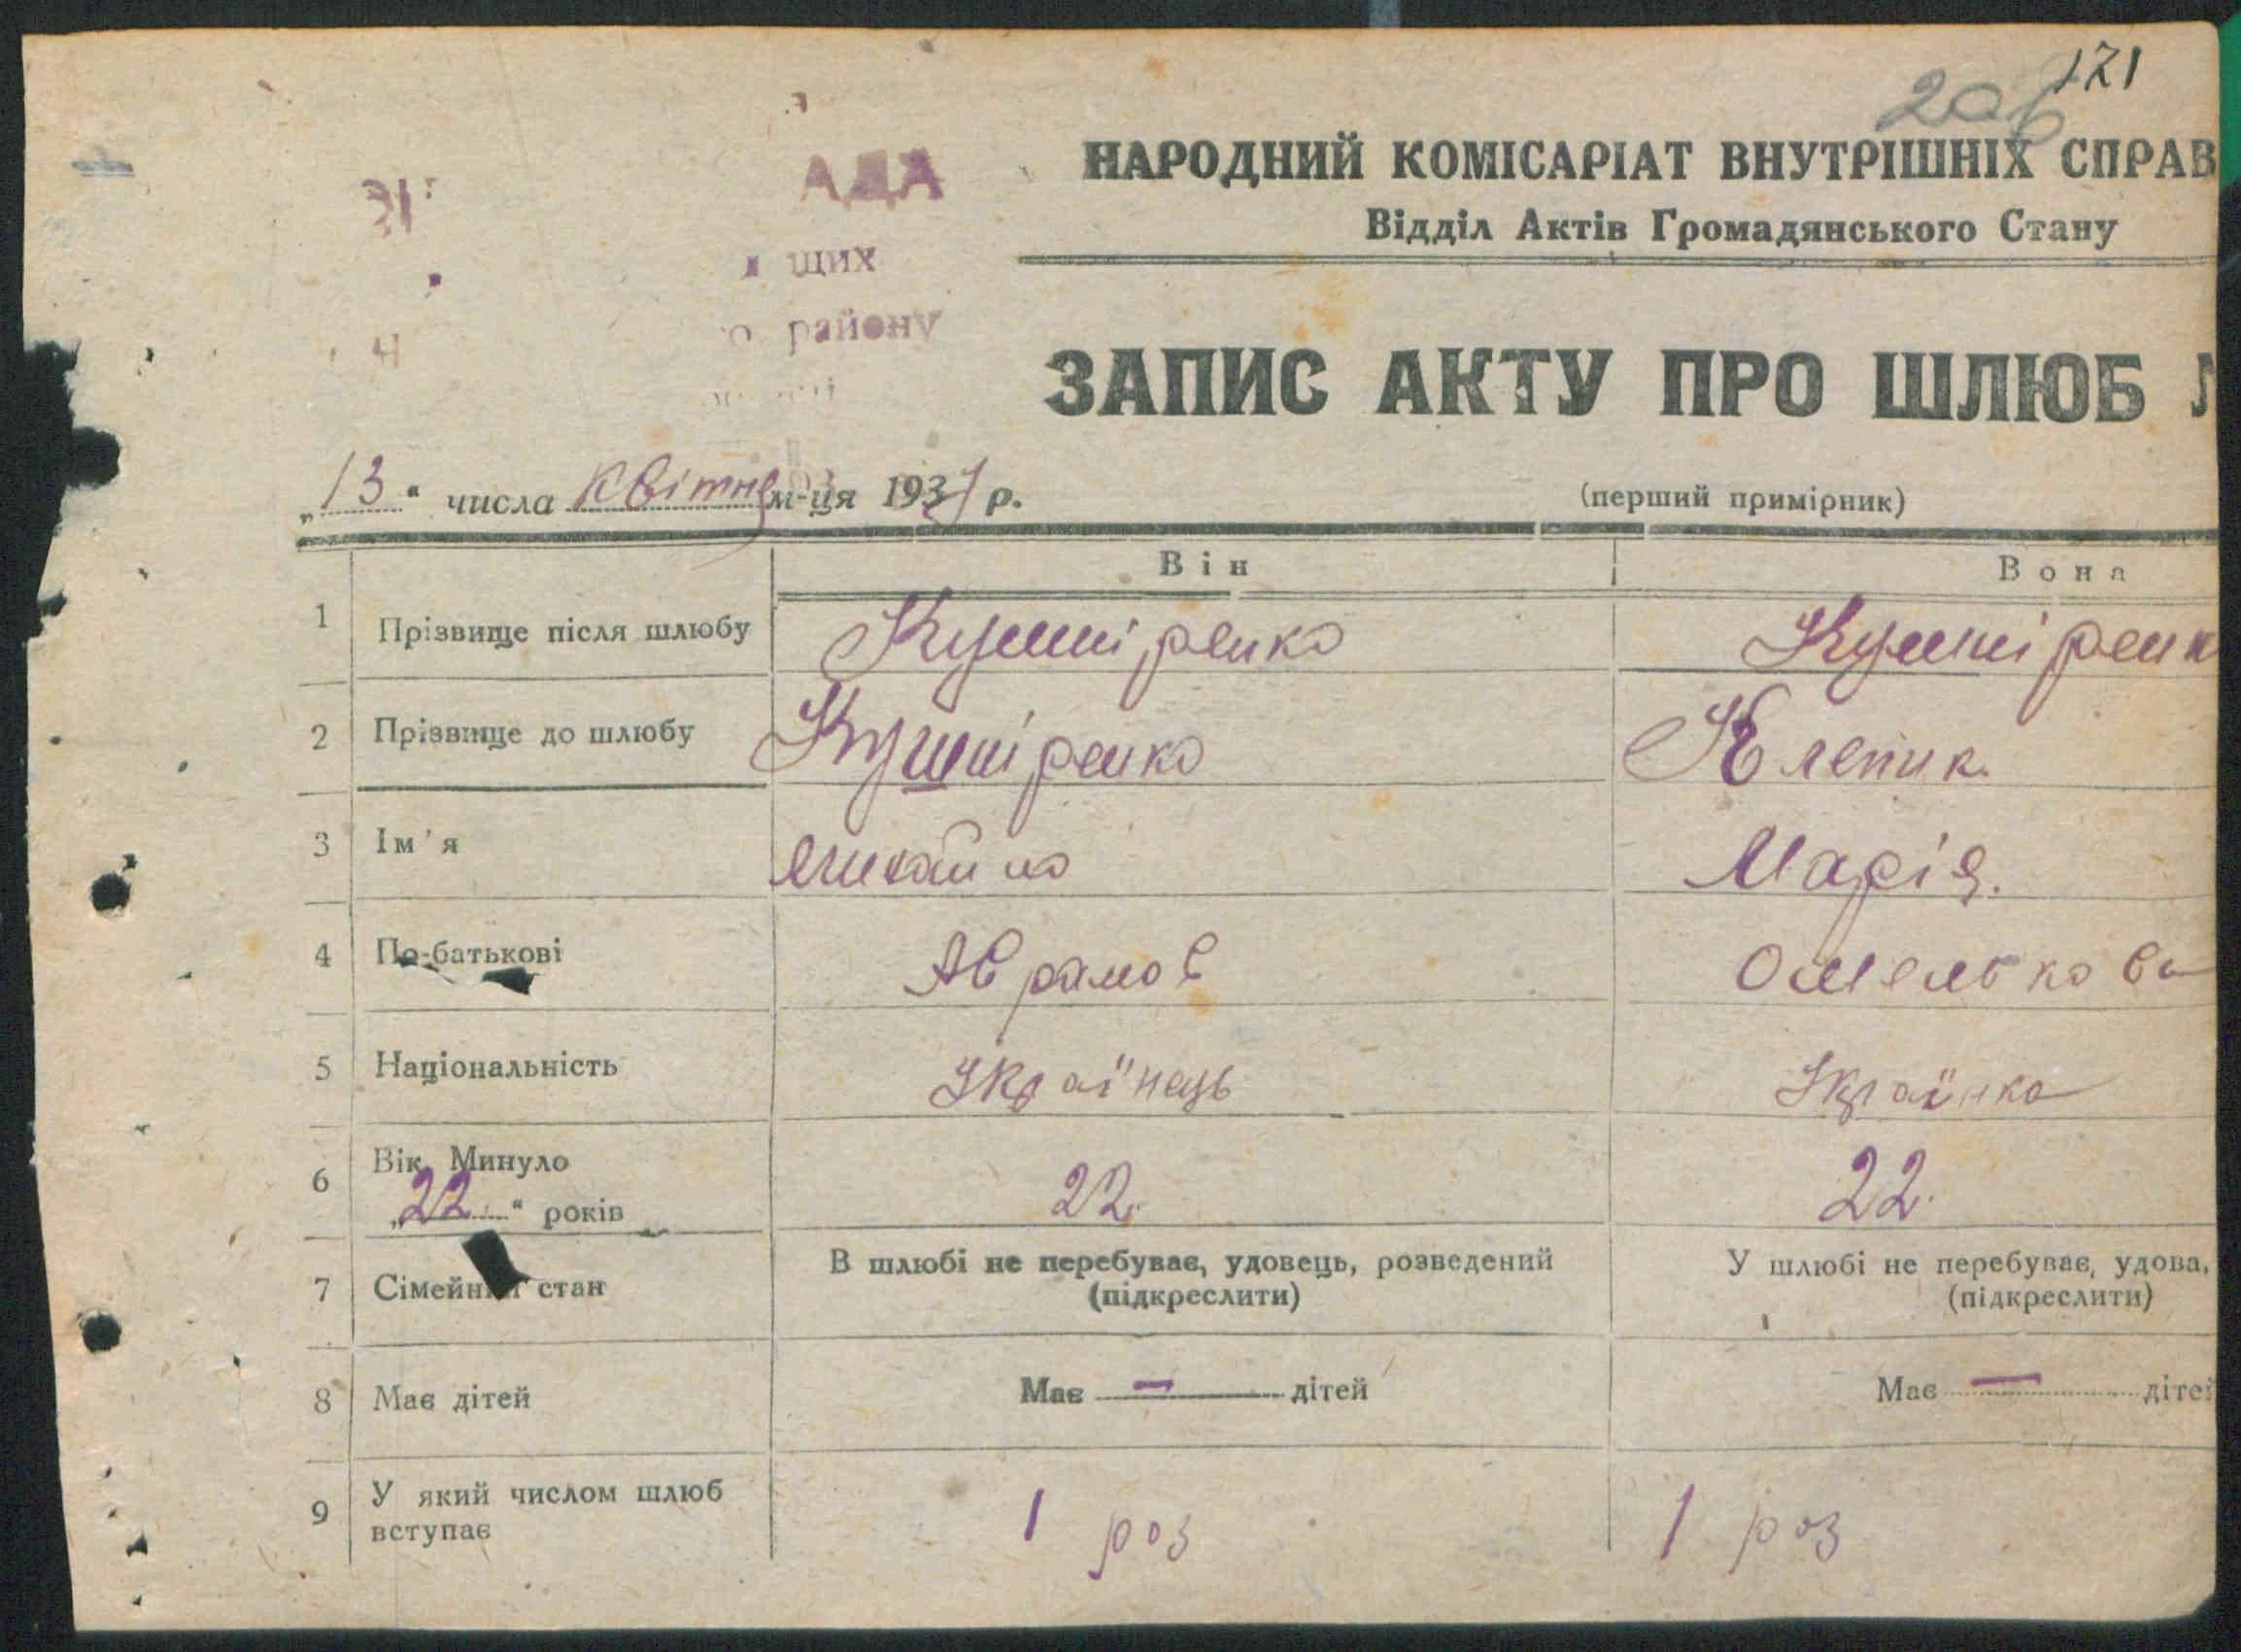 171
206
АДА
щих
району
НАРОДНИЙ КОМІСАРІАТ ВНУТРІШНІХ СПРАВ
Відділ Актів Громадянського Стану
ЗАПИС АКТУ ПРО ШЛЮБ
„13“ числа квітня м-ця 1937 р.
(перший примірник)
Він Вона
1 Прізвище після шлюбу Кушніренко Кушніренк
2 Прізвище до шлюбу Кушніренко Клепик
3 Ім'я Михайло Марія.
4 По-батькові Аврамов Омелькова
5 Національність Українець Українка
6 Вік Минуло „22“ років 22. 22.
7 Сімейний стан В шлюбі не перебуває, удовець, розведений У шлюбі не перебуває, удова,
(підкреслити) (підкреслити)
8 Має дітей Має — дітей Має — дітей
9 У який числом шлюб 1 раз 1 раз
вступає